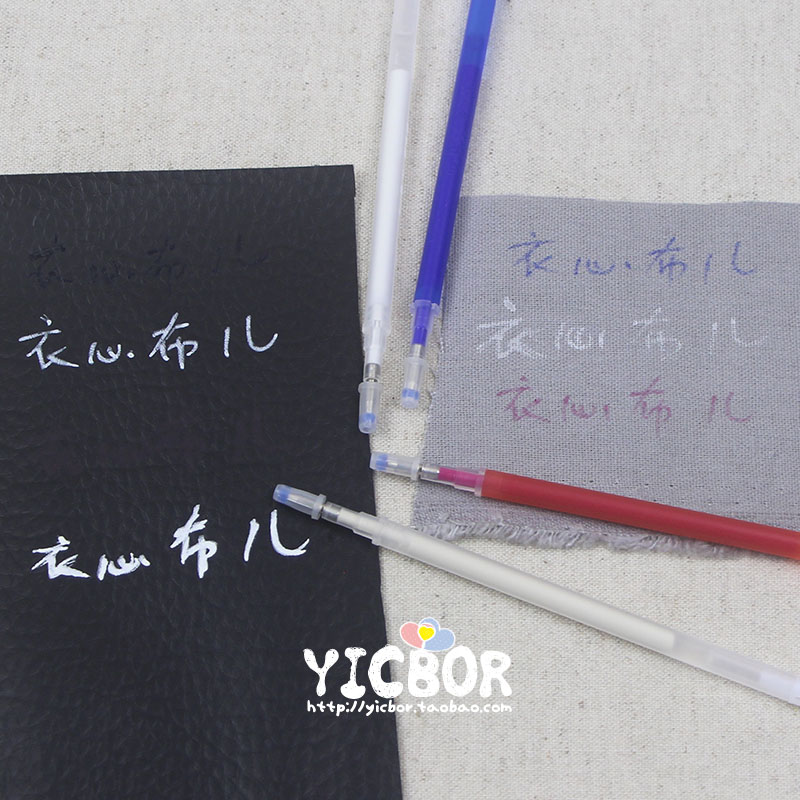 衣心·布儿
衣心·布儿
衣心布儿
衣心·布儿
衣心布儿
衣心·布儿
YICBOR
http://yicbor.taobao.com